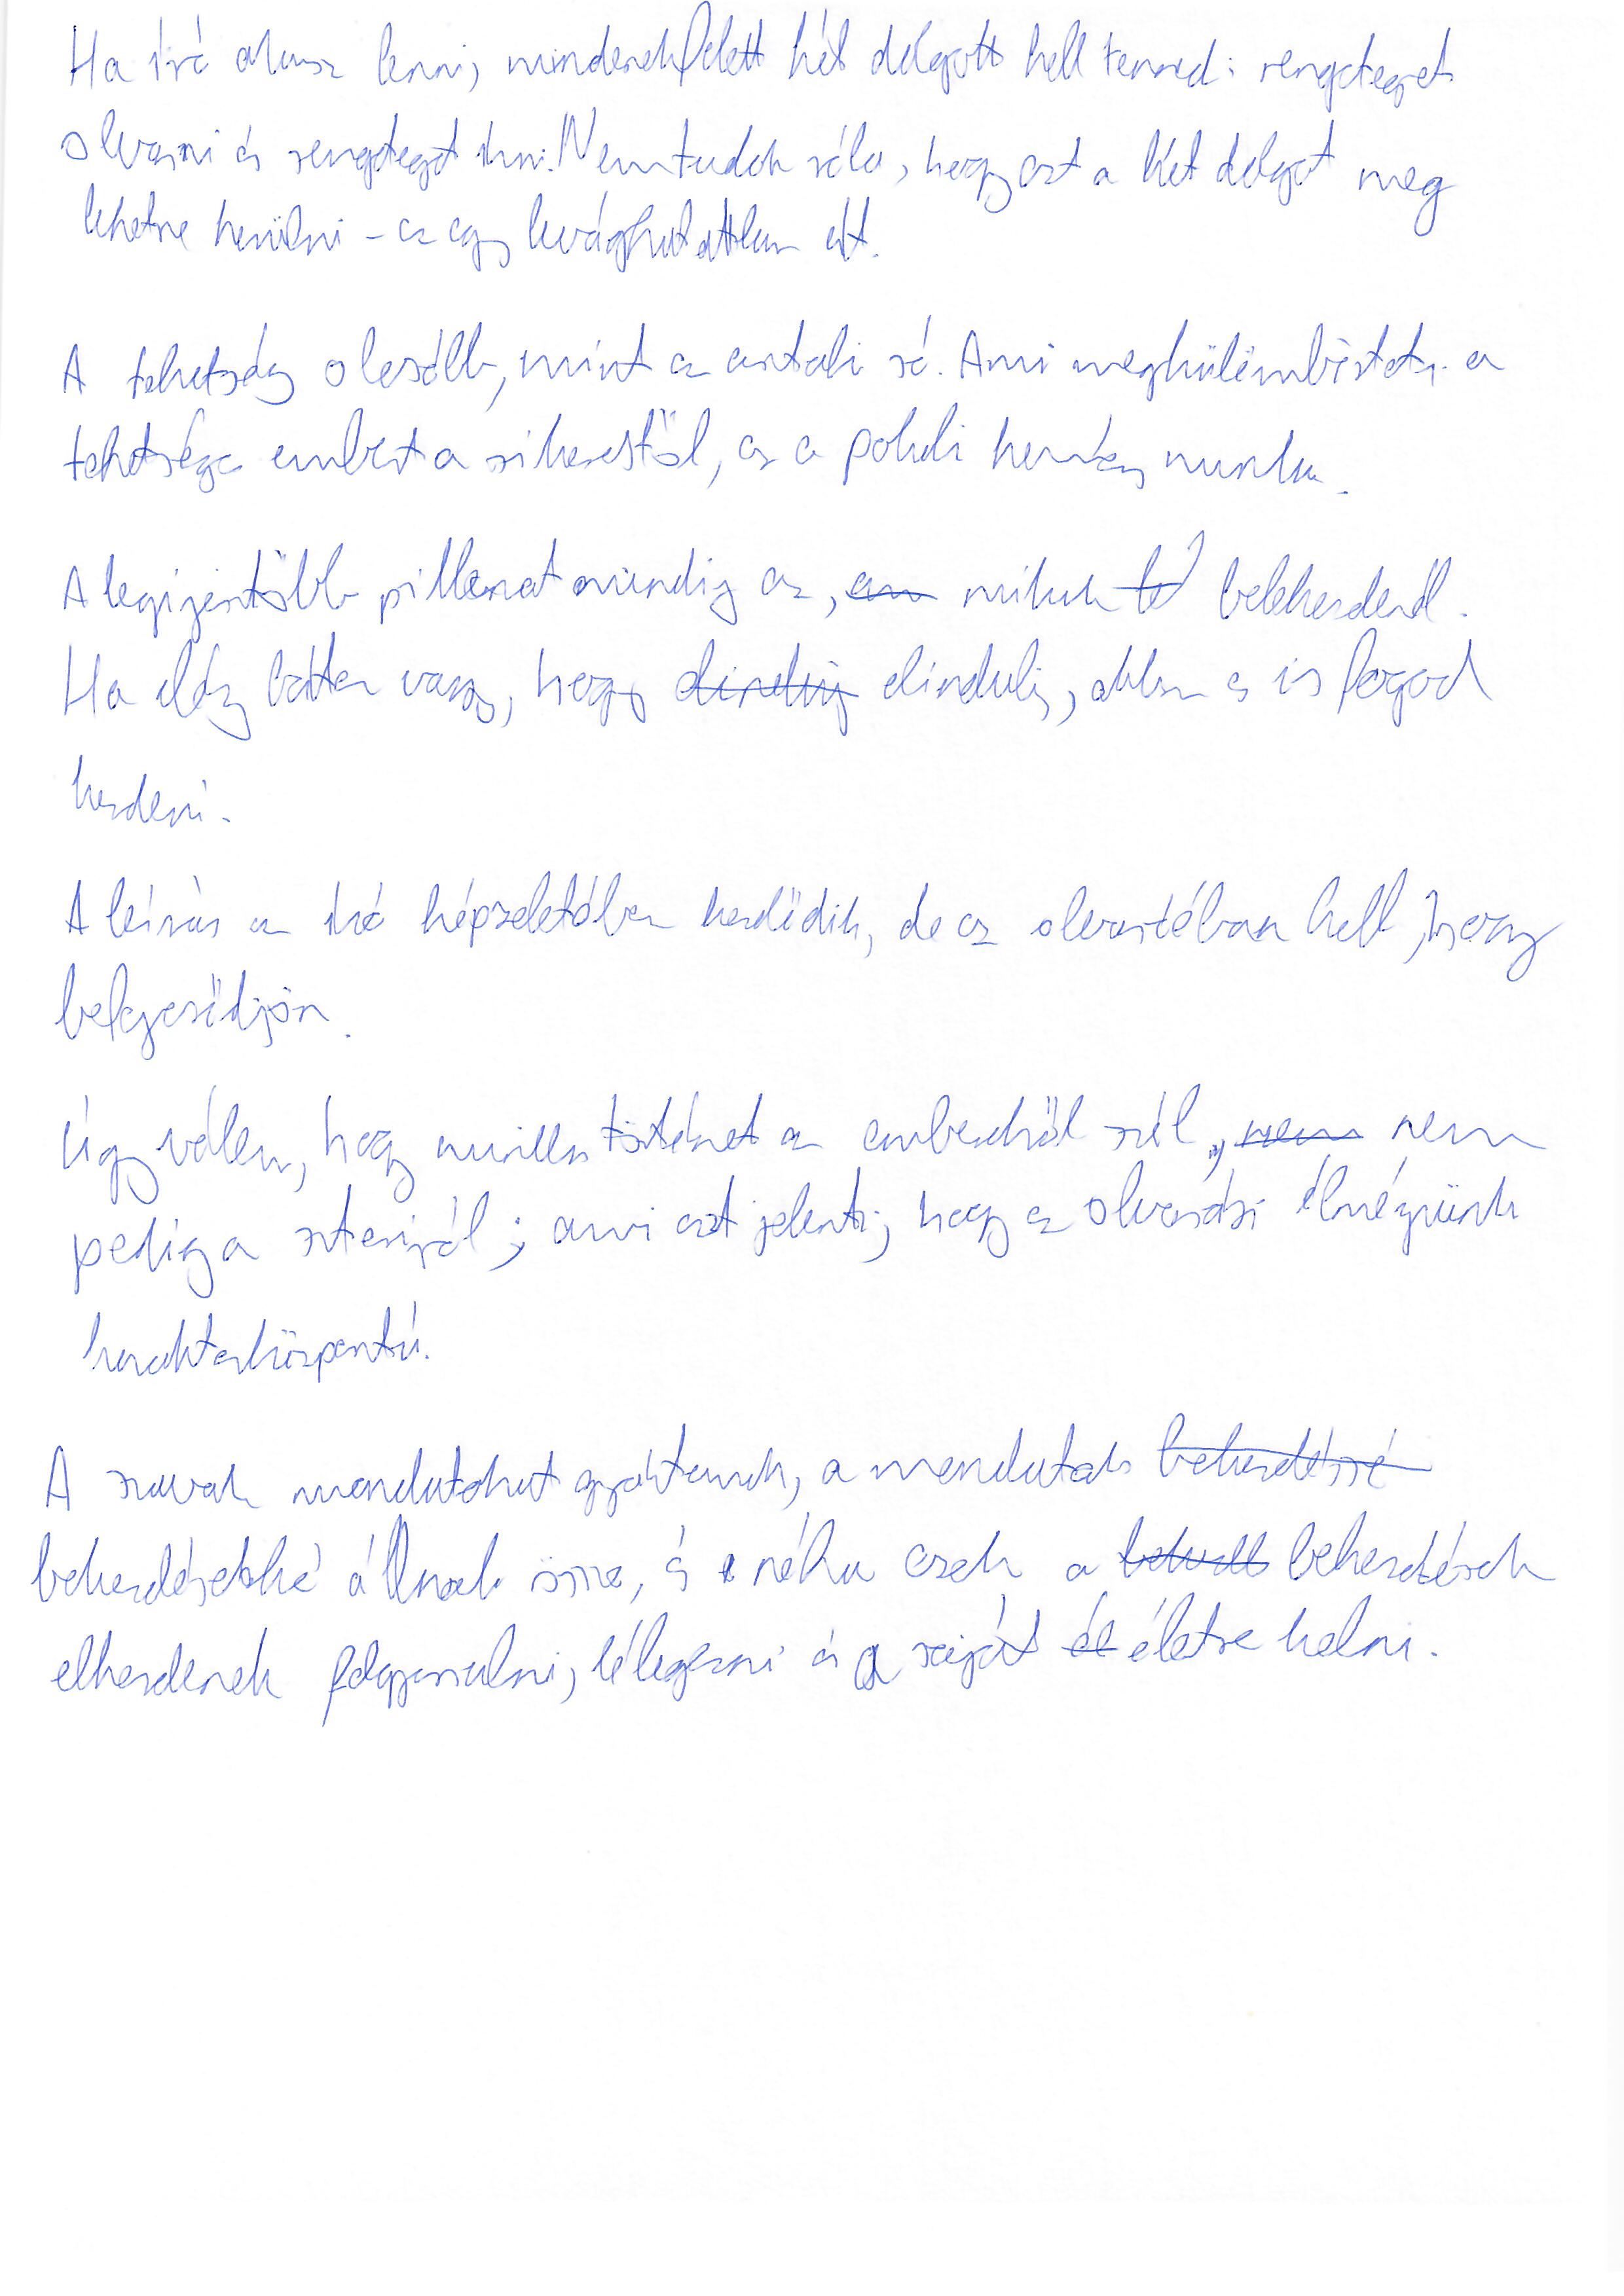 Ha író akarsz lenni, mindenekfelett két dolgott kell tenned: rengeteget
olvasni és rengeteget írni. Nem tudok róla, hogy ezt a két dolgot meg
lehetne kerülni – ez egy levághatattlan út.
A tehetség olcsóbb, mint az asztali só. Ami megkülömböszteti a
tehetséges embert a sikerestől, az a pokoli kemény munka.
A legijesztőbb pillanat mindig az, mikor belekezdenél.
Ha elég bátor vagy, hogy elindulj, akkor az is fogod
kezdeni.
A leírás az író képzeletében kezdődik, de az olvasóéban kell, hogy
befejeződjön.
Úgy vélem, hogy minden történet az emberekről szól, nem
pedig a sztoriról; ami azt jelenti, hogy az olvasási élményünk
karakterközpontú.
A szavak mondatokat gyártanak, a mondatok
bekezdésekké állnak össze, és néha ezek a bekezdések
elkezdenek felgyorsulni, lélegezni és a saját életre kelni.